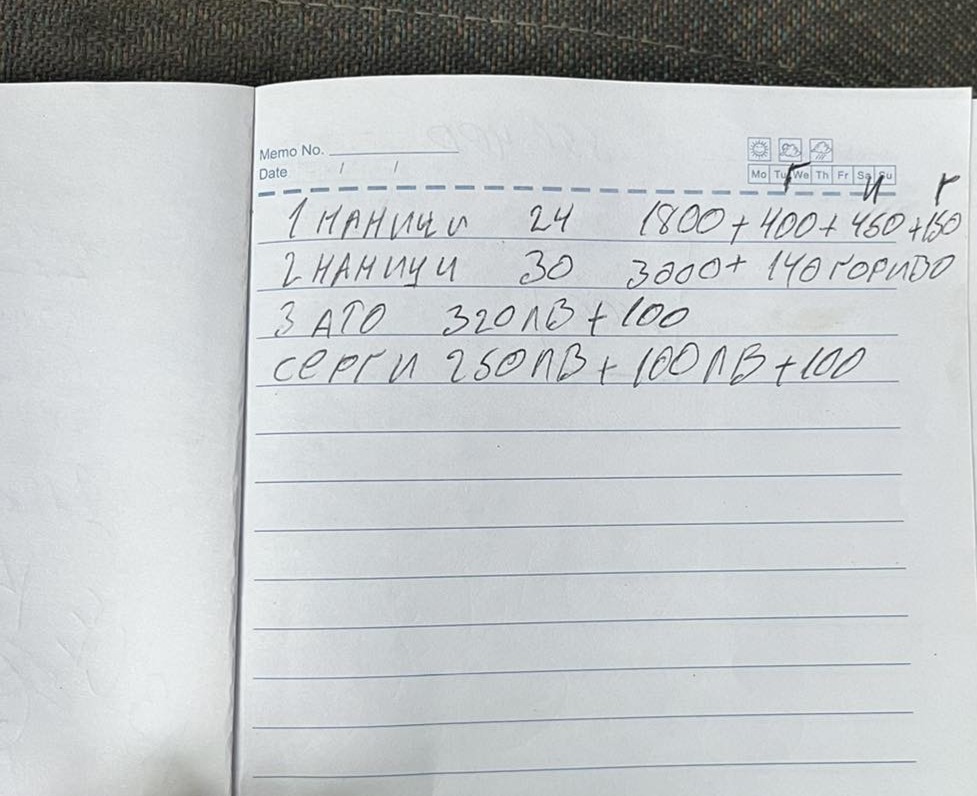 Memo No.
Date / /
Mo Tu We Th Fr Sa Su
Г И Г
1 НАНИЦИ 24 1800 + 400 + 450 + 150
2 НАНИЦИ 30 3000 + 140 ГОРИВО
3 АТО 320 ЛВ + 100
СЕРГИ 250 ЛВ + 100 ЛВ + 100